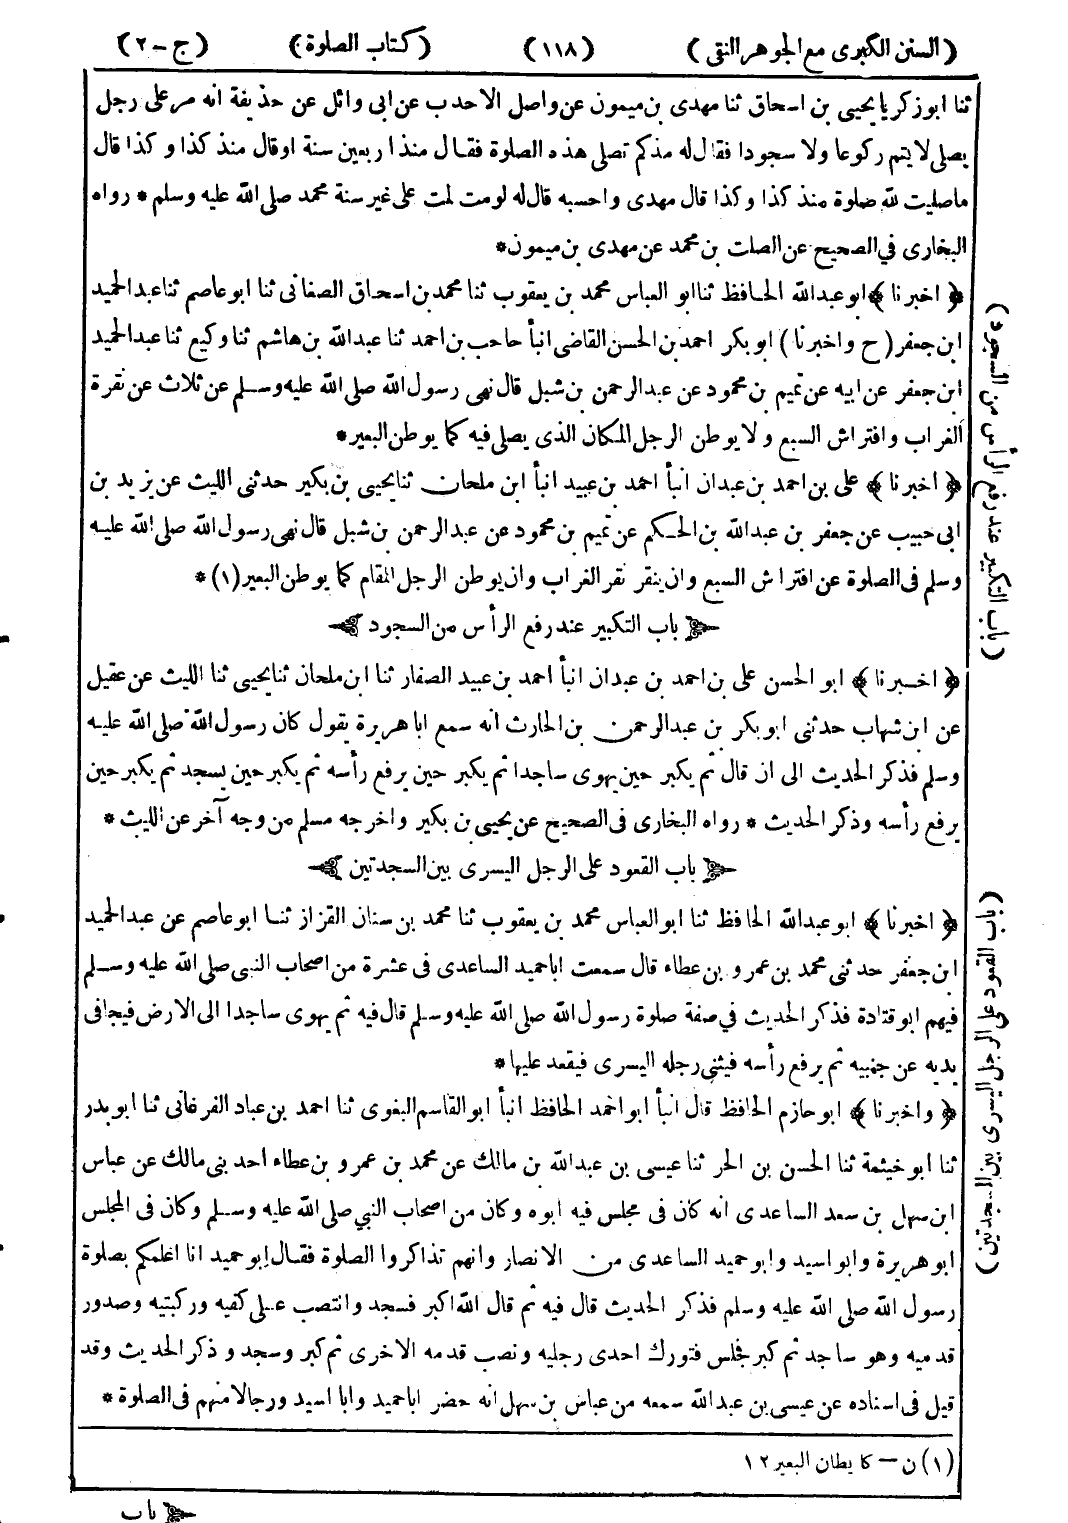 (السنن الكبرى مع الجوهر النقى) (١١٨) (كتاب الصلوة) (ج-٢)
ثنا ابو زكريا يحيى بن اسحاق ثنا مهدى بن ميمون عن واصل الاحدب عن ابى وائل عن حذيفة انه مر على رجل
يصلى لا يتم ركوعا ولا سجودا فقال له مذكم تصلى هذه الصلوة فقال منذ اربعين سنة او قال منذ كذا وكذا قال
ما صليت لله صلوة منذ كذا وكذا قال مهدى واحسبه قال له لومت لمت على غير سنة محمد صلى الله عليه وسلم * رواه
البخارى فى الصحيح عن الصلت بن محمد عن مهدى بن ميمون *
﴿ اخبرنا ﴾ ابو عبد الله الحافظ ثنا ابو العباس محمد بن يعقوب ثنا محمد بن اسحاق الصغانى ثنا ابو عاصم ثنا عبد الحميد
ابن جعفر (ح واخبرنا) ابو بكر احمد بن الحسن القاضى انبأ حاجب بن احمد ثنا عبد الله بن هاشم ثنا وكيع ثنا عبد الحميد
ابن جعفر عن ابيه عن تميم بن محمود عن عبد الرحمن بن شبل قال نهى رسول الله صلى الله عليه وسلم عن ثلاث عن نقرة
الغراب وافتراش السبع ولا يوطن الرجل المكان الذى يصلى فيه كما يوطن البعير *
﴿ اخبرنا ﴾ على بن احمد بن عبدان انبأ احمد بن عبيد انبأ ابن ملحان ثنا يحيى بن بكير حدثنى الليث عن يزيد بن
ابى حبيب عن جعفر بن عبد الله بن الحكم عن تميم بن محمود عن عبد الرحمن بن شبل قال نهى رسول الله صلى الله عليه
وسلم فى الصلوة عن افتراش السبع وان ينقر نقر الغراب وان يوطن الرجل المقام كما يوطن البعير (١) *
باب التكبير عند رفع الرأس من السجود
﴿ اخبرنا ﴾ ابو الحسن على بن احمد بن عبدان انبأ احمد بن عبيد الصفار ثنا ابن ملحان ثنا يحيى ثنا الليث عن عقيل
عن ابن شهاب حدثنى ابو بكر بن عبد الرحمن بن الحارث انه سمع ابا هريرة يقول كان رسول الله صلى الله عليه
وسلم فذكر الحديث الى ان قال ثم يكبر حين يهوى ساجدا ثم يكبر حين يرفع رأسه ثم يكبر حين يسجد ثم يكبر حين
يرفع رأسه وذكر الحديث * رواه البخارى فى الصحيح عن يحيى بن بكير واخرجه مسلم من وجه آخر عن الليث *
باب القعود على الرجل اليسرى بين السجدتين
﴿ اخبرنا ﴾ ابو عبد الله الحافظ ثنا ابو العباس محمد بن يعقوب ثنا محمد بن سنان القزاز ثنا ابو عاصم عن عبد الحميد
ابن جعفر حدثنى محمد بن عمرو بن عطاء قال سمعت ابا حميد الساعدى فى عشرة من اصحاب النبى صلى الله عليه وسلم
فيهم ابو قتادة فذكر الحديث فى صفة صلوة رسول الله صلى الله عليه وسلم قال فيه ثم يهوى ساجدا الى الارض فيجافى
يديه عن جنبيه ثم يرفع رأسه فيثنى رجله اليسرى فيقعد عليها *
﴿ واخبرنا ﴾ ابو حازم الحافظ قال انبأ ابو احمد الحافظ انبأ ابو القاسم البغوى ثنا احمد بن عباد الفرغانى ثنا ابو بدر
ثنا أبو خيثمة ثنا الحسن بن الحر ثنا عيسى بن عبد الله بن مالك عن محمد بن عمرو بن عطاء احد بنى مالك عن عباس
ابن سهل بن سعد الساعدى انه كان فى مجلس فيه ابوه وكان من اصحاب النبي صلى الله عليه وسلم وكان فى المجلس
ابو هريرة وابو اسيد وابو حميد الساعدى من الانصار وانهم تذاكروا الصلوة فقال ابو حميد انا اعلمكم بصلوة
رسول الله صلى الله عليه وسلم فذكر الحديث قال فيه ثم قال الله اكبر فسجد وانتصب على كفيه وركبتيه وصدور
قدميه وهو ساجد ثم كبر فجلس فتورك احدى رجليه ونصب قدمه الاخرى ثم كبر وسجد وذكر الحديث وقد
قيل فى اسناده عن عيسى بن عبد الله سمعه من عباس بن سهل انه حضر ابا حميد وابا اسيد ورجالا منهم فى الصلوة *
(١) ن – كايطان البعير ١٢
باب
(باب التكبير عند رفع الرأس من السجود)
(باب القعود على الرجل اليسرى بين السجدتين)